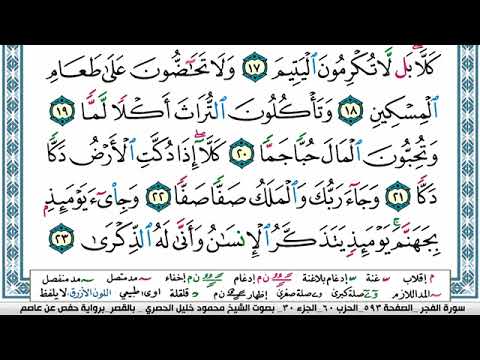 كَلَّا ۖ بَل لَّا تُكْرِمُونَ ٱلْيَتِيمَ ١٧ وَلَا تَحَٰٓضُّونَ عَلَىٰ طَعَامِ
ٱلْمِسْكِينِ ١٨ وَتَأْكُلُونَ ٱلتُّرَاثَ أَكْلًا لَّمًّا ١٩
وَتُحِبُّونَ ٱلْمَالَ حُبًّا جَمًّا ٢٠ كَلَّآ ۖ إِذَا دُكَّتِ ٱلْأَرْضُ دَكًّا
دَكًّا ٢١ وَجَآءَ رَبُّكَ وَٱلْمَلَكُ صَفًّا صَفًّا ٢٢ وَجِا۟ىٓءَ يَوْمَئِذٍۭ
بِجَهَنَّمَ ۚ يَوْمَئِذٍ يَتَذَكَّرُ ٱلْإِنسَٰنُ وَأَنَّىٰ لَهُ ٱلذِّكْرَىٰ ٢٣
م إقلاب غنة إدغام بلاغنة ن م إدغام ن م إخفاء مد متصل مد منفصل
المد اللازم صلة كبرى صلة صغرى إظهار ن م قلقلة ا و ى: طبيعي اللون الأزرق: لا يلفظ
سورة الفجر _الصفحة ٥٩٣_ الحزب ٦٠_ الجزء ٣٠_ بصوت الشيخ محمود خليل الحصري _ بالقصر_ برواية حفص عن عاصم